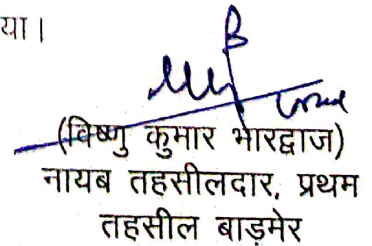 या।
(विष्णु कुमार भारद्वाज)
नायब तहसीलदार, प्रथम
तहसील बाड़मेर